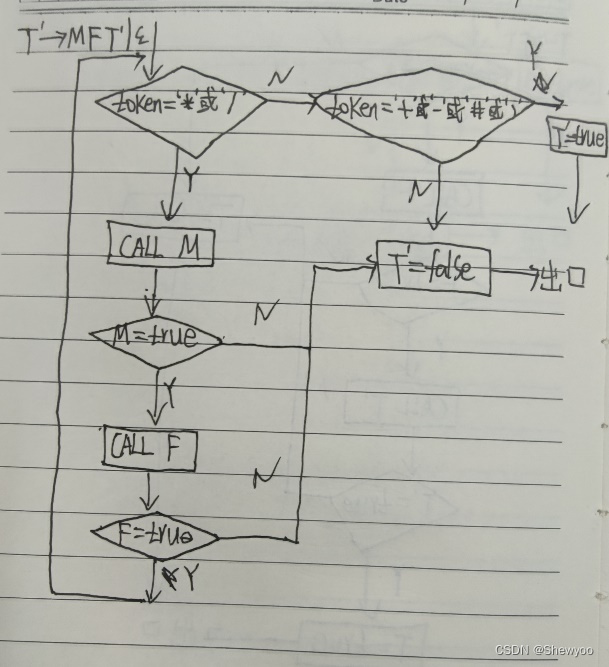 T'→MFT'|ε
N
Y
token='*'或'/'
token='+'或'-'或#或')'
T'=true
Y
N
CALL M
T'=false
出口
N
M=true
Y
CALL F
N
F=true
Y
CSDN @Shewyoo